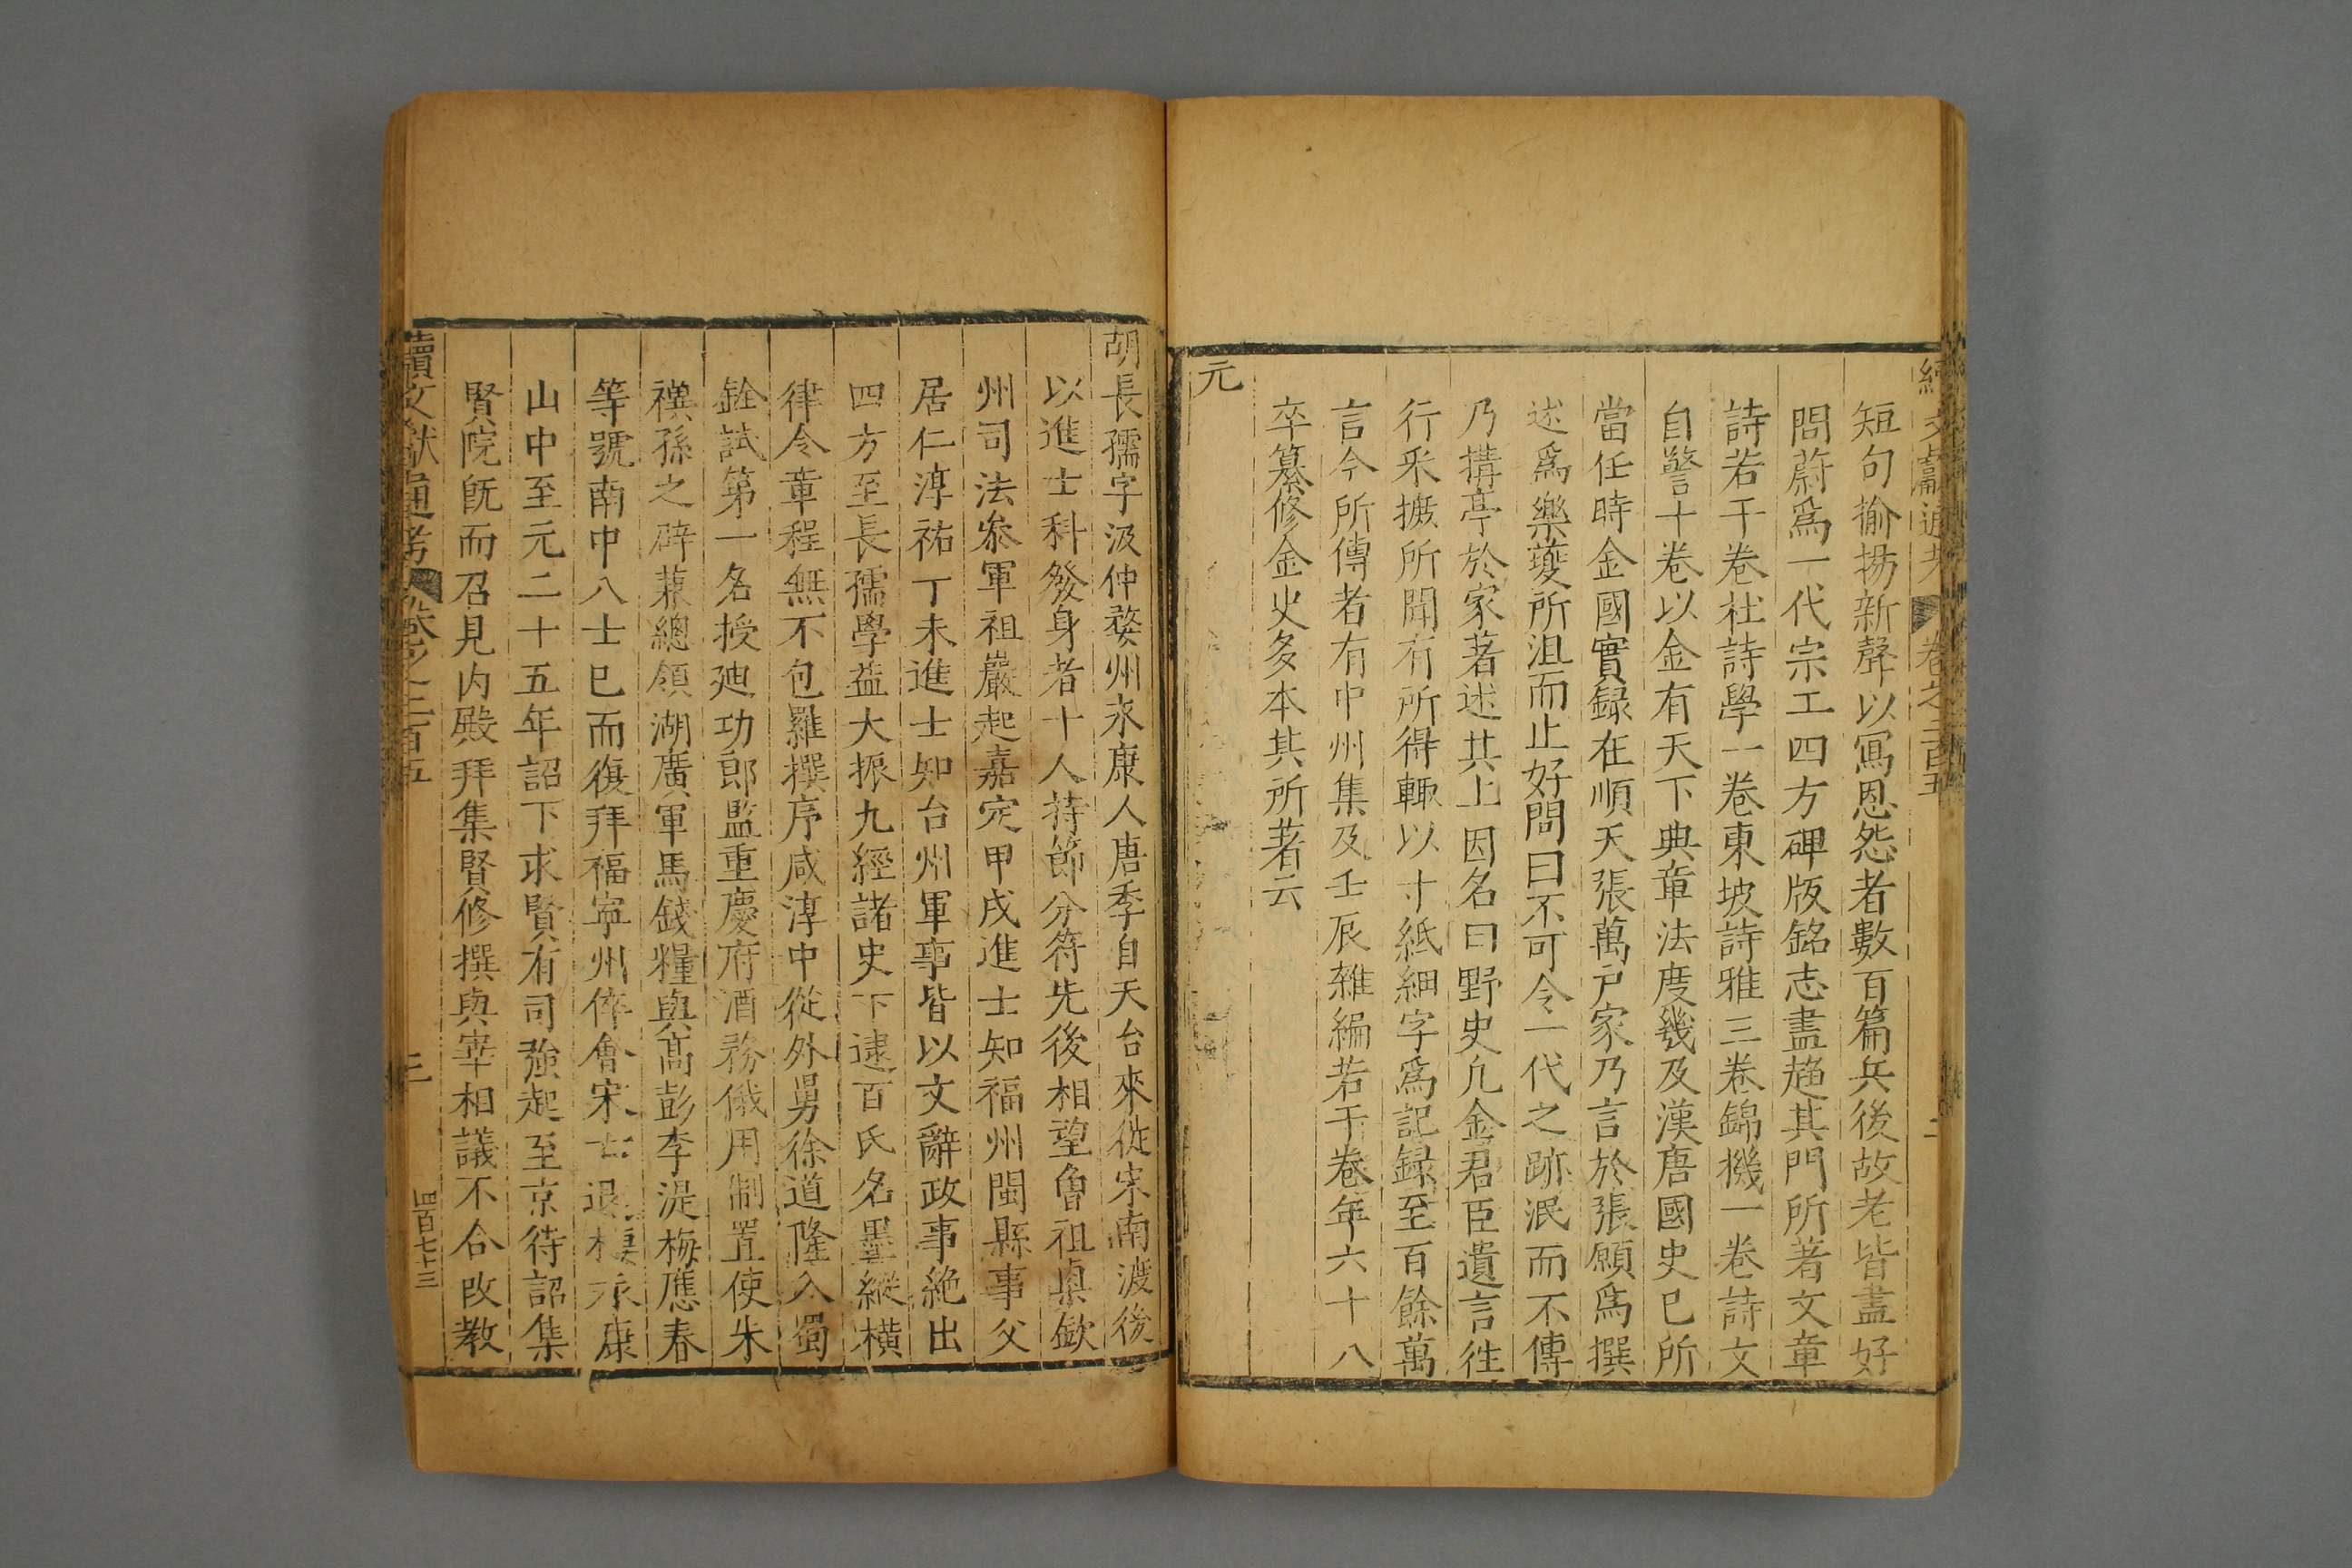 續文獻通考 卷之二百五 二
短句揄揚新聲以寫恩怨者數百篇兵後故老皆盡好
問蔚爲一代宗工四方碑版銘志盡趨其門所著文章
詩若干卷杜詩學一卷東坡詩雅三卷錦機一卷詩文
自警十卷以金有天下典章法度幾及漢唐國史已所
當任時金國實録在順天張萬户家乃言於張願爲撰
述爲樂夔所沮而止好問曰不可令一代之跡泯而不傳
乃搆亭於家著述其上因名曰野史凡金君臣遺言徃
行采摭所聞有所得輙以寸紙細字爲記録至百餘萬
言今所傳者有中州集及壬辰雜編若干卷年六十八
卒纂修金史多本其所著云
元
胡長孺字汲仲婺州永康人唐季自天台來從宋南渡後
以進士科發身者十人持節分符先後相望曾祖槙歙
州司法叅軍祖巖起嘉定甲戌進士知福州閩縣事父
居仁淳祐丁未進士知台州軍事皆以文辭政事絶出
四方至長孺學益大振九經諸史下逮百氏名墨縱橫
律令章程無不包羅撰序咸淳中從外舅徐道隆入蜀
銓試第一名授廸功郎監重慶府酒務俄用制置使朱
禩孫之辟兼總領湖廣軍馬錢糧與高彭李湜梅應春
等號南中八士已而復拜福寧州倅會宋亡退棲永康
山中至元二十五年詔下求賢有司強起至京待詔集
賢院旣而召見内殿拜集賢修撰與宰相議不合改教
續文獻通考 卷之二百五 三 四百七十三